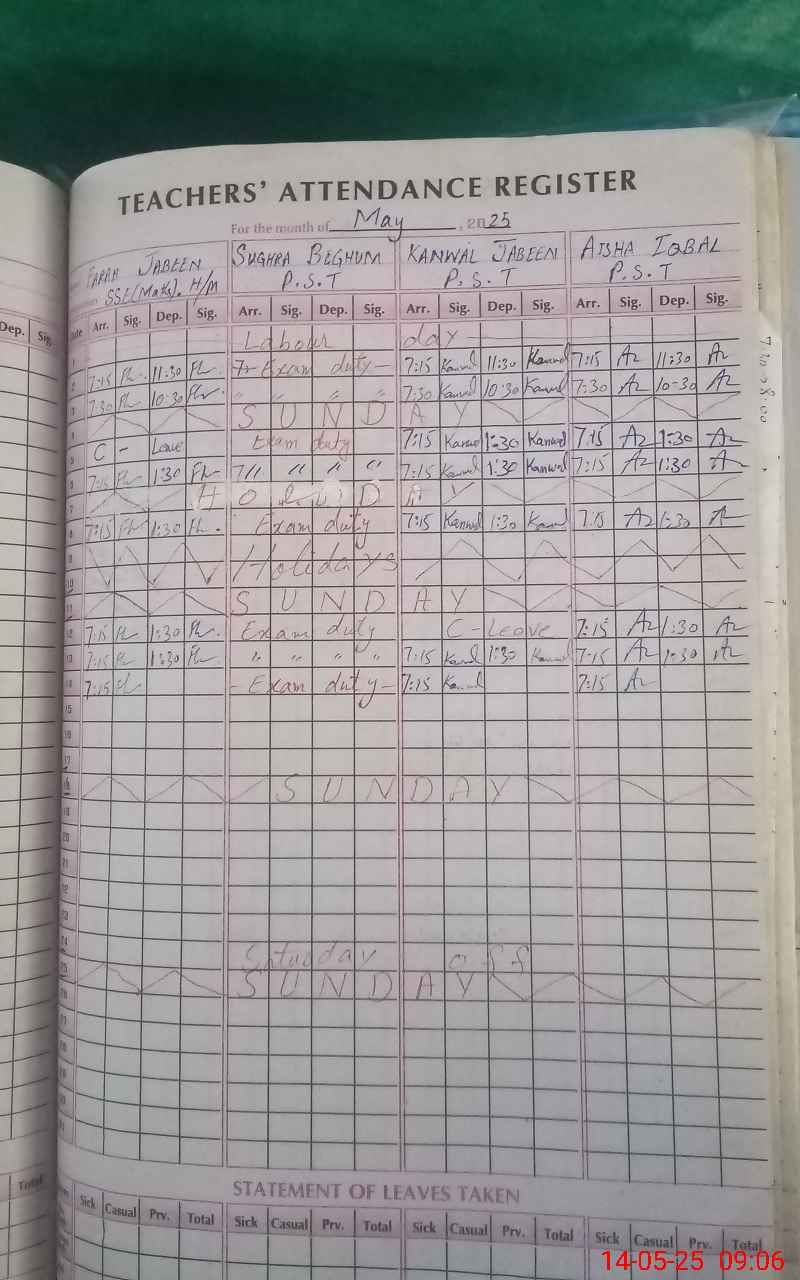 TEACHERS' ATTENDANCE REGISTER
For the month of May, 2025
FARAH JABEEN SUGHRA BEGHUM KANWAL JABEEN AISHA IQBAL
H/M P.S.T P.S.T P.S.T
Dep. Sig. Date Arr. Sig. Dep. Sig. Arr. Sig. Dep. Sig. Arr. Sig. Dep. Sig. Arr. Sig. Dep. Sig.
1 Labour day
2 7:15 11:30 Exam duty 7:15 Kanwal 11:30 Kanwal 7:15 Az 11:30 Az
3 7:30 10:30 " " " " 7:30 Kanwal 10:30 Kanwal 7:30 Az 10:30 Az
4 SUNDAY
5 C - Leave Exam duty 7:15 Kanwal 1:30 Kanwal 7:15 Az 1:30 Az
6 7:15 1:30 " " " 7:15 Kanwal 1:30 Kanwal 7:15 Az 1:30 Az
7 HOLIDAY
8 7:15 1:30 Exam duty 7:15 Kanwal 1:30 Kanwal 7:15 Az 1:30 Az
9 Holidays
10
11 SUNDAY
12 7:15 1:30 Exam duty C-Leave 7:15 Az 1:30 Az
13 7:15 1:30 " " " " 7:15 Kanwal 1:30 Kanwal 7:15 Az 1:30 Az
14 7:15 - Exam duty - 7:15 Kanwal 7:15 Az
15
16
17
18 SUNDAY
19
20
21
22
23
24 Saturday off
25 SUNDAY
STATEMENT OF LEAVES TAKEN
Total Sick Casual Prv. Total Sick Casual Prv. Total Sick Casual Prv. Total Sick Casual Prv. Total
14-05-25 09:06